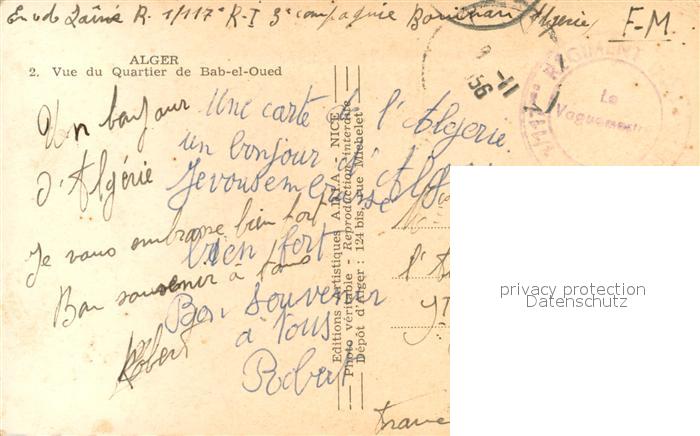 R. 1/117e R-I 3e compagnie Bouinan (Algérie) F-M.
ALGER
2. Vue du Quartier de Bab-el-Oued
Un bonjour
d'Algérie
Je vous embrasse bien fort
Bon souvenir à tous
Robert
Une carte de l'Algérie.
un bonjour d'Alg
Je vous embrasse
bien fort
Bon souvenir
à tous
Robert
Editions Artistiques JANSOL
Photo véritable - Reproduction interdite
Dépôt d'Alger : 124 bis, rue Michelet
9 -11
56
REGIMENT
Le
Vaguemestre
l'A
France
privacy protection
Datenschutz